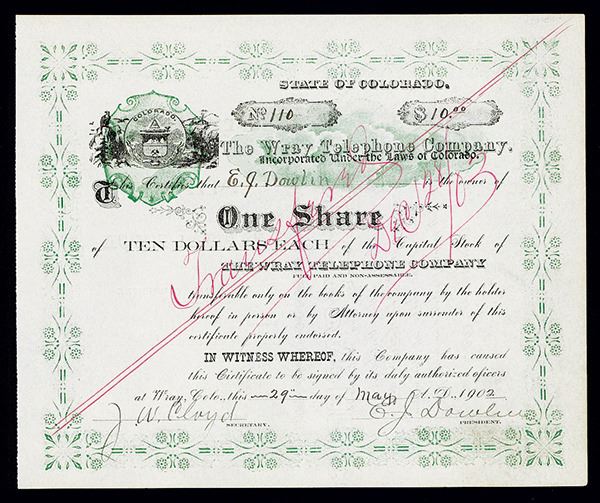 STATE OF COLORADO.
COLORADO.
No 110
$10.00
The Wray Telephone Company.
Incorporated Under the Laws of Colorado.
This Certifies that E. J. Dowlin is the owner of
One Share
of TEN DOLLARS EACH of the Capital Stock of
THE WRAY TELEPHONE COMPANY
FULL PAID AND NON-ASSESSABLE.
transferable only on the books of the company by the holder
hereof in person or by Attorney upon surrender of this
certificate properly endorsed.
IN WITNESS WHEREOF, this Company has caused
this Certificate to be signed by its duly authorized officers
at Wray, Colo., this 29 day of May A. D., 1902
J. W. Cloyd
SECRETARY.
E. J. Dowlin
PRESIDENT.
Transferred